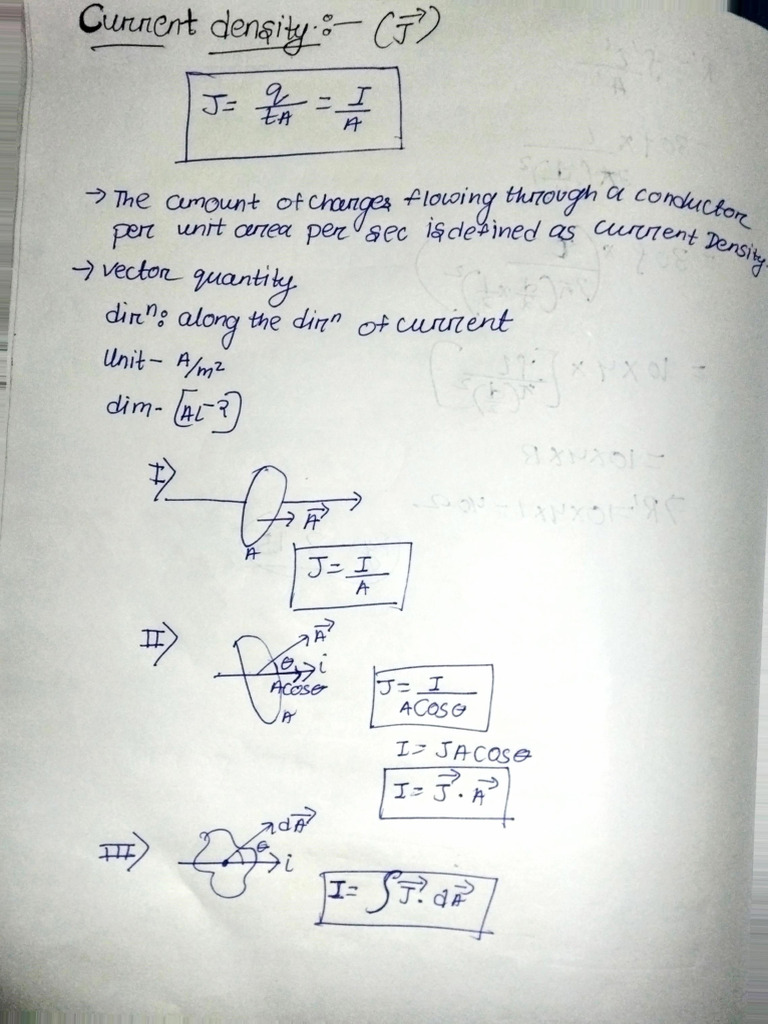 Current density:- (J⃗)
J = q/tA = I/A
→ The amount of charges flowing through a conductor
per unit area per sec is defined as current Density.
→ vector quantity
dirⁿ: along the dirⁿ of current
Unit - A/m²
dim - [AL⁻²]
I)
A⃗
A
J = I/A
II)
A⃗
θ i
Acosθ
A
J = I/ACOSθ
I = JACOSθ
I = J⃗ . A⃗
III)
dA⃗
θ
i
I = ∫J⃗ . dA⃗